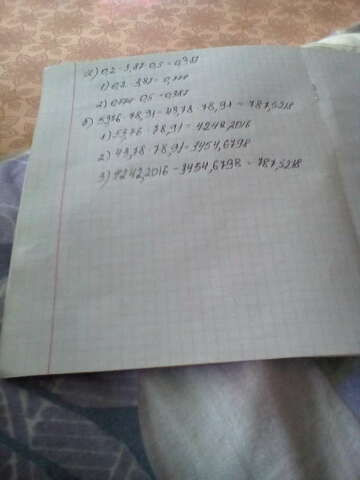 а) 0,2 · 3,87 · 0,5 = 0,387
1) 0,2 · 3,87 = 0,774
2) 0,774 · 0,5 = 0,387
б) 53,76 · 78,91 - 43,78 · 78,91 = 787,5218
1) 53,76 · 78,91 = 4242,2016
2) 43,78 · 78,91 = 3454,6798
3) 4242,2016 - 3454,6798 = 787,5218